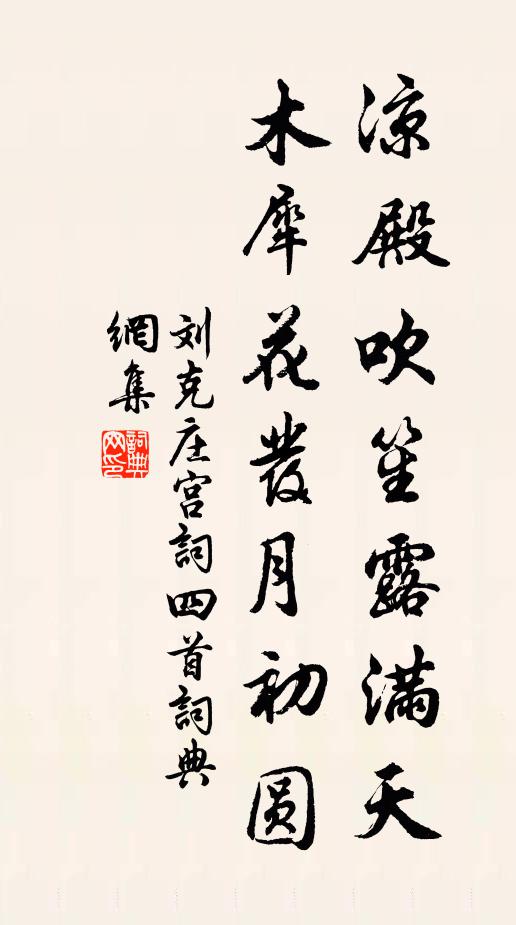 凉殿吹笙露满天
木犀花發月初圆
刘克庄宫詞四首詞典
網集
詞典网印